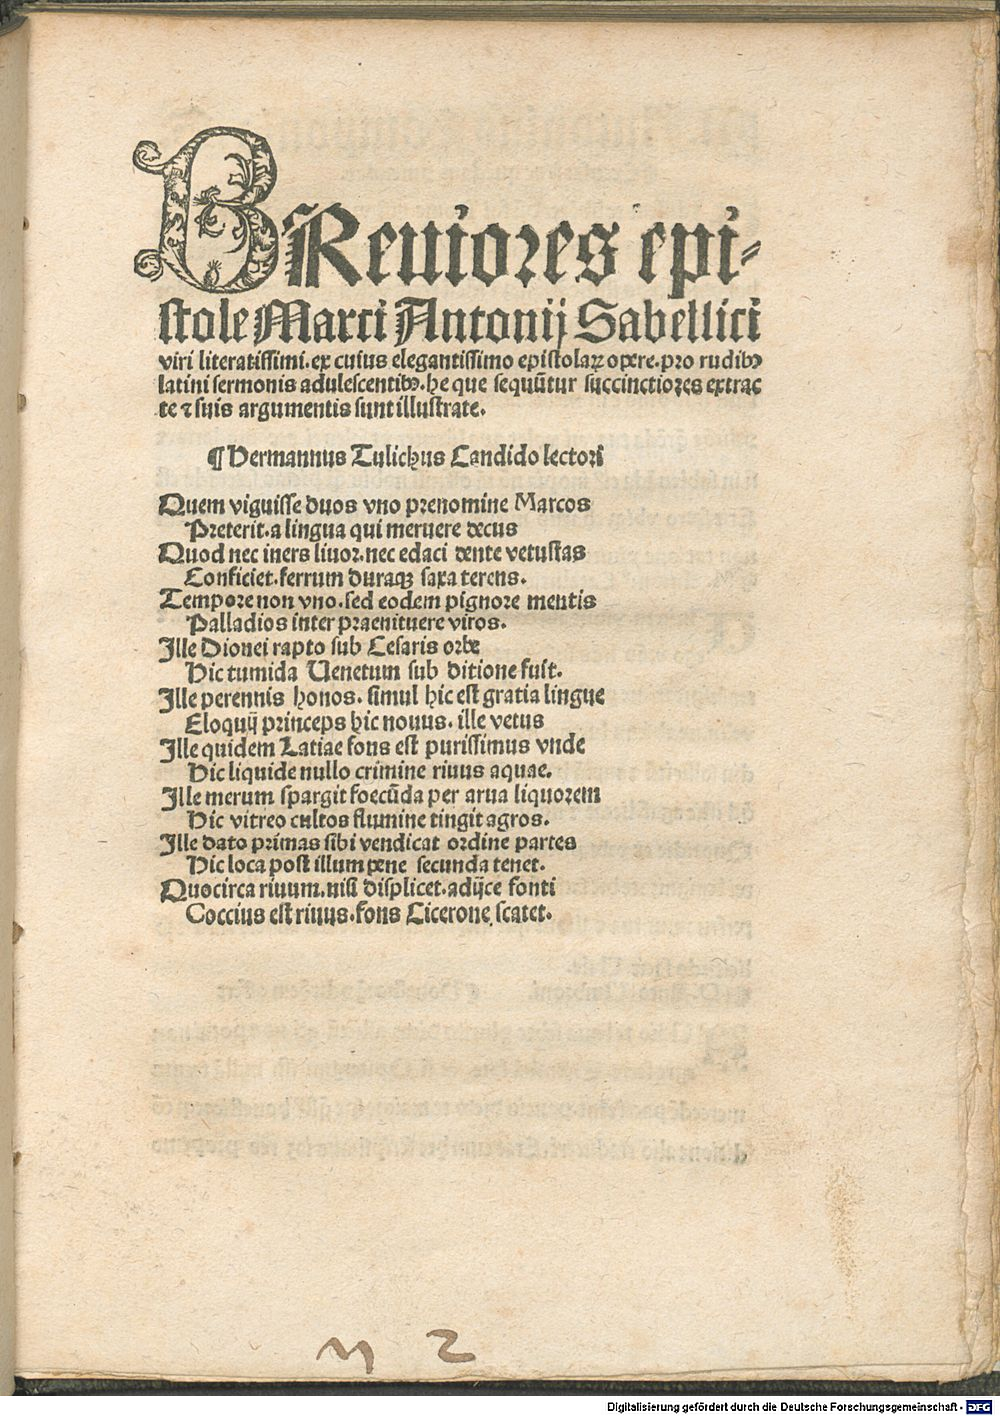 BReuiores epi-
stole Marci Antonij Sabellici
viri literatissimi. ex cuius elegantissimo epistolaꝝ opere. pro rudibꝰ
latini sermonis adulescentibꝰ. he que sequũtur succinctiores extrac
te ⁊ suis argumentis sunt illustrate.
¶ Hermannus Tulichus Candido lectori
Quem viguisse duos vno prenomine Marcos
Preterit. a lingua qui meruere decus
Quod nec iners liuor. nec edaci dente vetustas
Conficiet. ferrum duraqꝫ saxa terens.
Tempore non vno. sed eodem pignore mentis
Palladios inter praenituere viros.
Ille Dionei rapto sub Cesaris orbe
Hic tumida Uenetum sub ditione fuit.
Ille perennis honos. simul hic est gratia lingue
Eloquij princeps hic nouus. ille vetus
Ille quidem Latiae fons est purissimus vnde
Hic liquide nullo crimine riuus aquae.
Ille merum spargit foecũda per arua liquorem
Hic vitreo cultos flumine tingit agros.
Ille dato primas sibi vendicat ordine partes
Hic loca post illum pene secunda tenet.
Quocirca riuum. nisi displicet. adijce fonti
Coccius est riuus. fons Cicerone scatet.
Digitalisierung gefördert durch die Deutsche Forschungsgemeinschaft - DFG